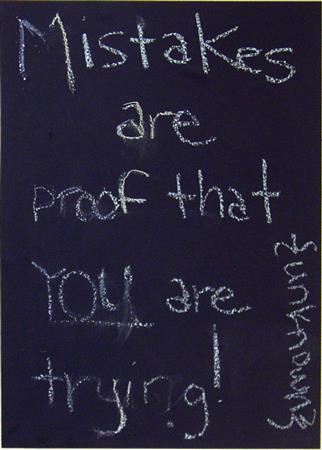 Mistakes
are
proof that
YOU are
trying!
{unknown}